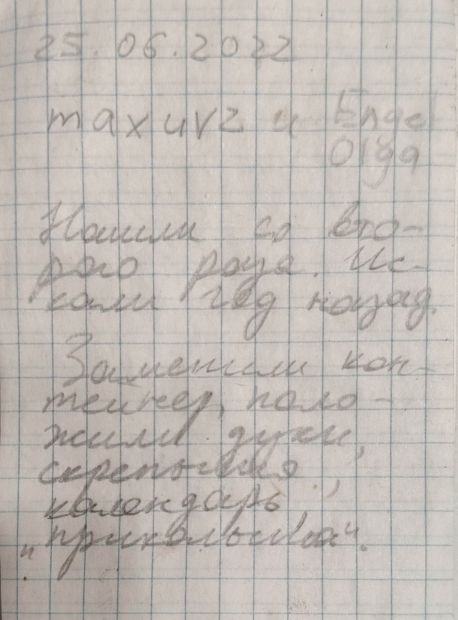 25.06.2022
maxuvz и Engel
Olga
Нашли со вто-
рого раза. Ис-
кали год назад.
Заменили кон-
тейнер, поло-
жили духи,
скрепыша,
календарь,
"прикольыша".